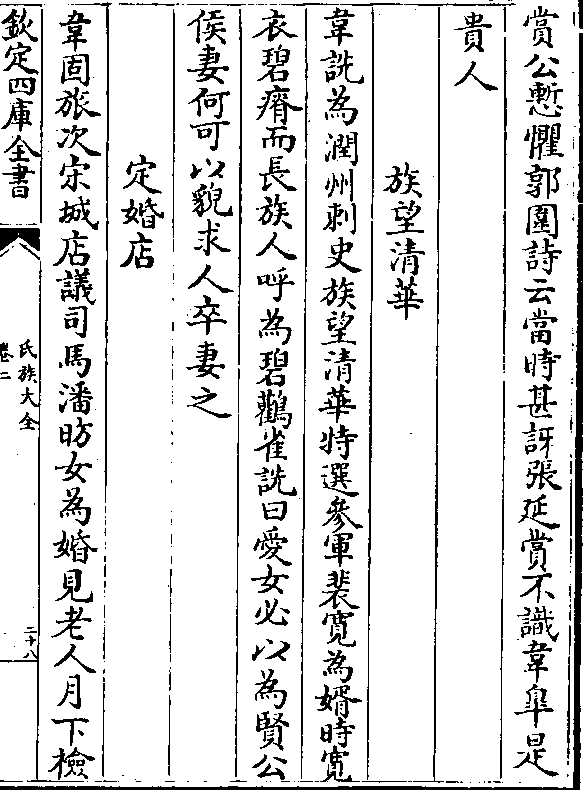 賞公慙懼郭圍詩云當時甚訝張延賞不識韋臯是
貴人
族望清華
韋詵為潤州刺史族望清華特選參軍裴寛為婿時寛
衣碧瘠而長族人呼為碧鸛雀詵曰愛女必以為賢公
侯妻何可以貌求人卒妻之
定婚店
韋固旅次宋城店議司馬潘昉女為婚見老人月下檢
欽定四庫全書
氏族大全
卷二
二十八